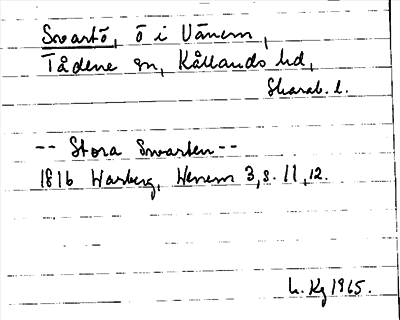 Svartö, ö i Vänern,
Tådene sn, Kållands hd,
Skarab. l.
-- Stora Swarten --
1816 Warberg, Wenern 3, s. 11, 12.
L. Kg 1965.